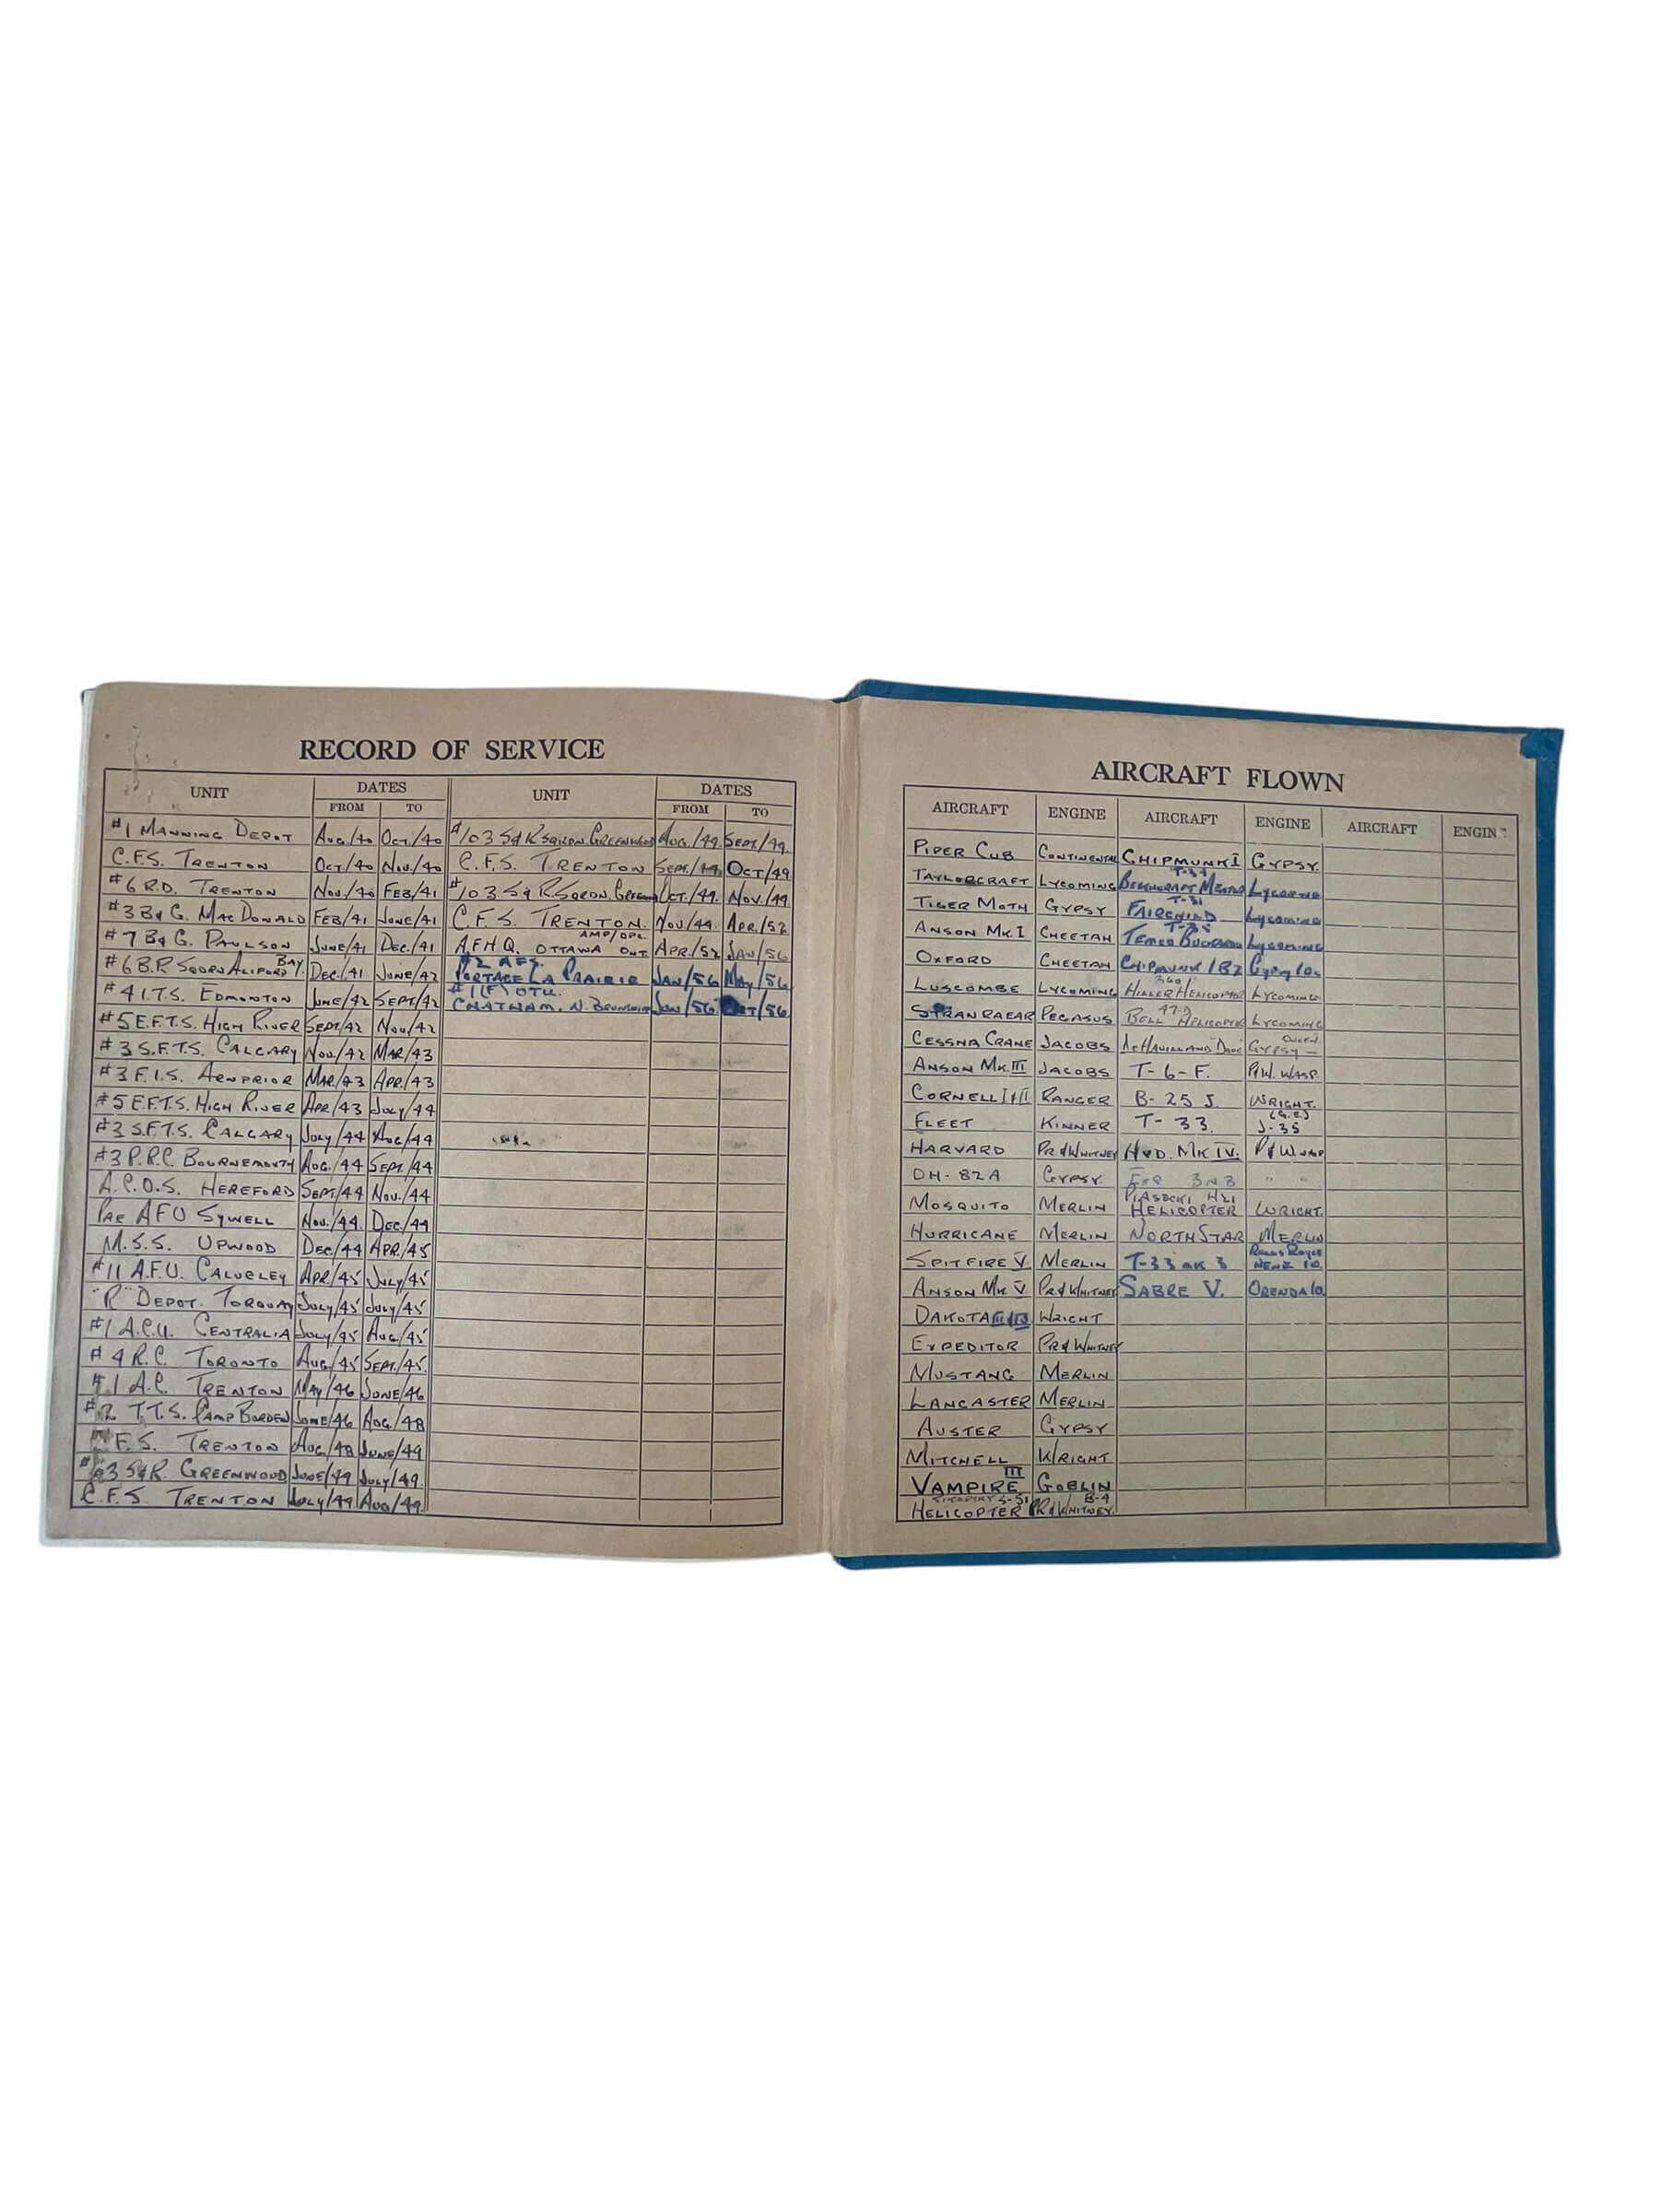 RECORD OF SERVICE
UNIT DATES UNIT DATES
FROM TO FROM TO
#1 MANNING DEPOT AUG./40 OCT./40
C.F.S. TRENTON OCT/40 NOV./40
#6 R.D. TRENTON NOV/40 FEB/41
#3 B&G. MACDONALD FEB/41 JUNE/41
#7 B&G. PAULSON JUNE/41 DEC./41
#6 B.R. SQDRN BAY. DEC./41 JUNE/42
#4 I.T.S. EDMONTON JUNE/42 SEPT./42
#5 E.F.T.S. HIGH RIVER SEPT/42 NOV/42
#3 S.F.T.S. CALGARY NOV./42 MAR/43
#3 F.I.S. ARNPRIOR MAR./43 APR./43
#5 E.F.T.S. HIGH RIVER APR/43 JULY/44
#3 S.F.T.S. CALGARY JULY/44 AUG/44
#3 P.R.C. BOURNEMOUTH AUG./44 SEPT./44
A.C.O.S. HEREFORD SEPT/44 NOV./44
PRE AFU SYWELL NOV./44. DEC./44
M.S.S. UPWOOD DEC/44 APR./45
#11 A.F.U. CALVELEY APR./45 JULY/45
"R" DEPOT. TORQUAY JULY/45 JULY/45
#1 A.C.U. CENTRALIA JULY/45 AUG./45
#4 R.C. TORONTO AUG/45 SEPT./45.
#1 A.C. TRENTON MAY/46 JUNE/46
#2 T.T.S. CAMP BORDEN JUNE/46 AUG./48
F.S. TRENTON AUG./48 JUNE/49
S&R. GREENWOOD JUNE/49 JULY/49.
C.F.S TRENTON JULY/49 AUG/49.
#103 S&R SQDRN. GREENWOOD AUG./49. SEPT./49.
C.F.S. TRENTON SEPT./49. OCT/49
#103 S&R. SQRDN. OCT./49. NOV./49
C.F.S. TRENTON. NOV/49. APR./52
AMP/OPL
A.F.H.Q. OTTAWA ONT APR./52 JAN/56
#2 AFS.
PORTAGE LA PRAIRIE JAN/56 MAY/56
#1(F) OTU.
CHATHAM, N. BRUNSWICK JUN/56 OCT/56
AIRCRAFT FLOWN
AIRCRAFT ENGINE AIRCRAFT ENGINE AIRCRAFT ENGIN
PIPER CUB CONTINENTAL
TAYLORCRAFT LYCOMING
TIGER MOTH GYPSY
ANSON MK.I CHEETAH
OXFORD CHEETAH
LUSCOMBE LYCOMING
STRANRAEAR PEGASUS
CESSNA CRANE JACOBS
ANSON MK.III JACOBS
CORNELL I&II RANGER
FLEET KINNER
HARVARD PR&WHITNEY
DH-82A GYPSY
MOSQUITO MERLIN
HURRICANE MERLIN
SPITFIRE V. MERLIN
ANSON MK V PR&WHITNEY
DAKOTA WRIGHT
EXPEDITOR PR&WHITNEY
MUSTANG MERLIN
LANCASTER MERLIN
AUSTER GYPSY
MITCHELL WRIGHT
VAMPIRE III GOBLIN
SIKORSKY S-51 B-4
HELICOPTER PR&WHITNEY.
CHIPMUNK I GYPSY.
T-34
BEECHCRAFT MENTOR Lycoming
T-31
FAIRCHILD Lycoming
T-35
TEMCO BUCKAROO Lycoming
CHIPMUNK 1B2 Gypsy 10.
360
HILLER HELICOPTER LYCOMING
47-D
BELL HELICOPTER LYCOMING
DeHAVILLAND "DOVE" GYPSY QUEEN
T-6-F. P&W. WASP.
B-25 J. WRIGHT.
T-33. (G.E.) J-35
HVD. MK IV. P&WASP
3N3 " "
PIASECKI H21
HELICOPTER WRIGHT.
NORTH STAR MERLIN
T-33 MK 3 Rolls Royce NENE 10.
SABRE V. ORENDA 10